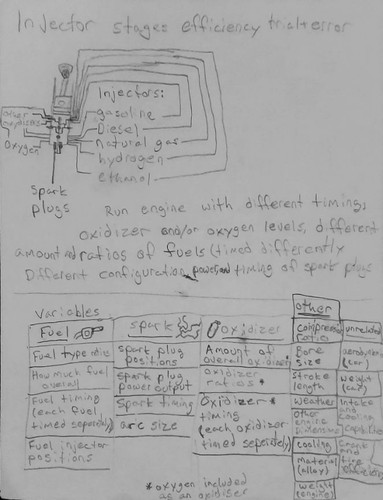 Injector stages efficiency trial+error
Injectors:
gasoline
Diesel
natural gas
hydrogen
ethanol
Other
oxydisers
Oxygen
Spark
plugs
Run engine with different timing,
oxidizer and/or oxygen levels, different
amount and ratios of fuels (timed differently
Different configuration, power and timing of spark plugs
Variables
Fuel
Fuel type ratios
How much fuel
overall
Fuel timing
(each fuel
timed seperately)
Fuel injector
positions
spark
spark plug
positions
spark plug
power output
Spark timing
arc size
oxidizer
Amount of
overall oxidizer
oxidizer
ratios *
Oxidizer *
timing
(each oxidizer
timed seperately)
other
compression
ratios
Bore
size
stroke
length
weather
other
engine
dimensions
cooling
material
(alloy)
weight (engine)
unrelated
aerodynamics
(car)
weight
(car)
Intake
and
coolant
capabilities
and
tire
* oxygen included
as an oxidiser